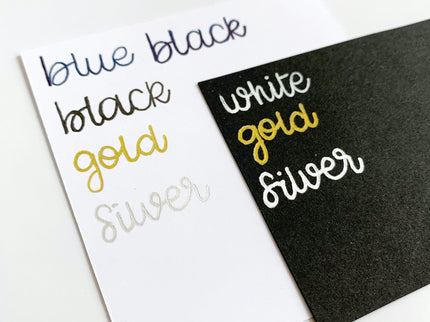 blue black
black
gold
silver
white
gold
silver